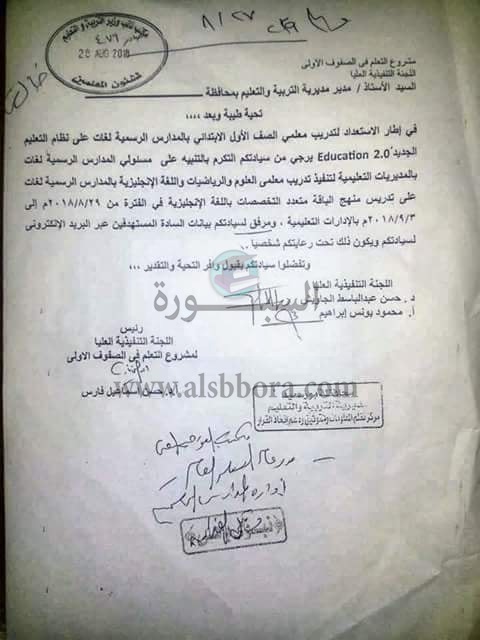 ٨/٢٧
مكتب نائب وزير التربية والتعليم
٤٧٦
28 AUG 2018
لشئون المعلمين
مشروع التعلم فى الصفوف الاولى
اللجنة التنفيذية العليا
السيد الأستاذ / مدير مديرية التربية والتعليم بمحافظة
تحية طيبة وبعد ،،،،
في إطار الاستعداد لتدريب معلمي الصف الأول الابتدائي بالمدارس الرسمية لغات على نظام التعليم
الجديد Education 2.0 يرجي من سيادتكم التكرم بالتنبيه على مسئولي المدارس الرسمية لغات
بالمديريات التعليمية لتنفيذ تدريب معلمى العلوم والرياضيات واللغة الإنجليزية بالمدارس الرسمية لغات
على تدريس منهج الباقة متعدد التخصصات باللغة الإنجليزية في الفترة من ٢٠١٨/٨/٢٩م إلى
٢٠١٨/٩/٣م بالإدارات التعليمية ، ومرفق لسيادتكم بيانات السادة المستهدفين عبر البريد الإلكترونى
لسيادتكم ويكون ذلك تحت رعايتكم شخصيا .
وتفضلوا سيادتكم بقبول وافر التحية والتقدير ،،،
اللجنة التنفيذية العليا
د. حسن عبدالباسط الجاويش
أ. محمود يونس إبراهيم
السبورة
رئيس
اللجنة التنفيذية العليا
لمشروع التعلم فى الصفوف الاولى
حسن إسماعيل فارس
www.alsbbora.com
مديرية التربية والتعليم
مركز نظم المعلومات ودعم اتخاذ القرار